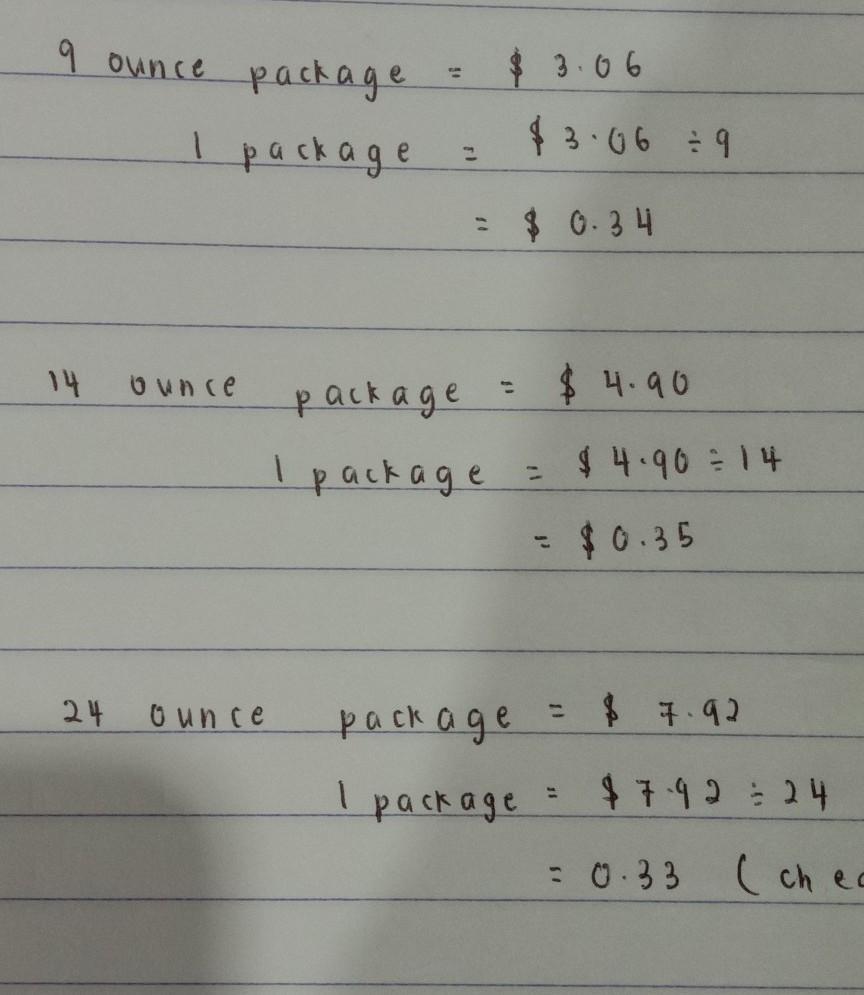 9 ounce package = $ 3.06
1 package = $ 3.06 ÷ 9
= $ 0.34
14 ounce package = $ 4.90
1 package = $ 4.90 ÷ 14
= $ 0.35
24 ounce package = $ 7.92
1 package = $ 7.92 ÷ 24
= 0.33 (